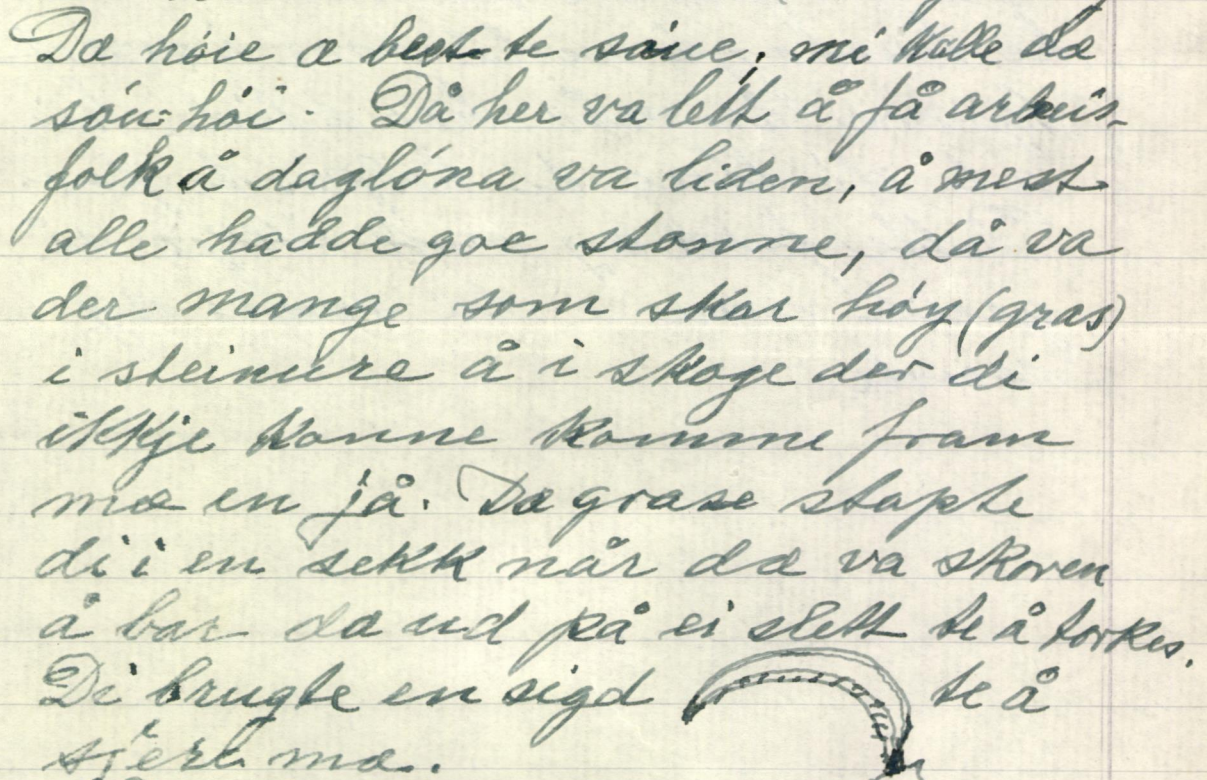 Dæ höie æ best te sóue; mi kalle dæ
sóu-höi. Då her va lett å få arbeis-
folk å daglóna va liden, å mest
alle hadde goe stonne, då va
der mange som skar höy (gras)
i steinure å i skoge der di
ikkje konne komme fram
mæ en jå. Dæ grase stapte
di i en sekk når dæ va skoren
å bar dæ ud på ei slett te å torkes.
Di brugte en sigd te å
sjera mæ.